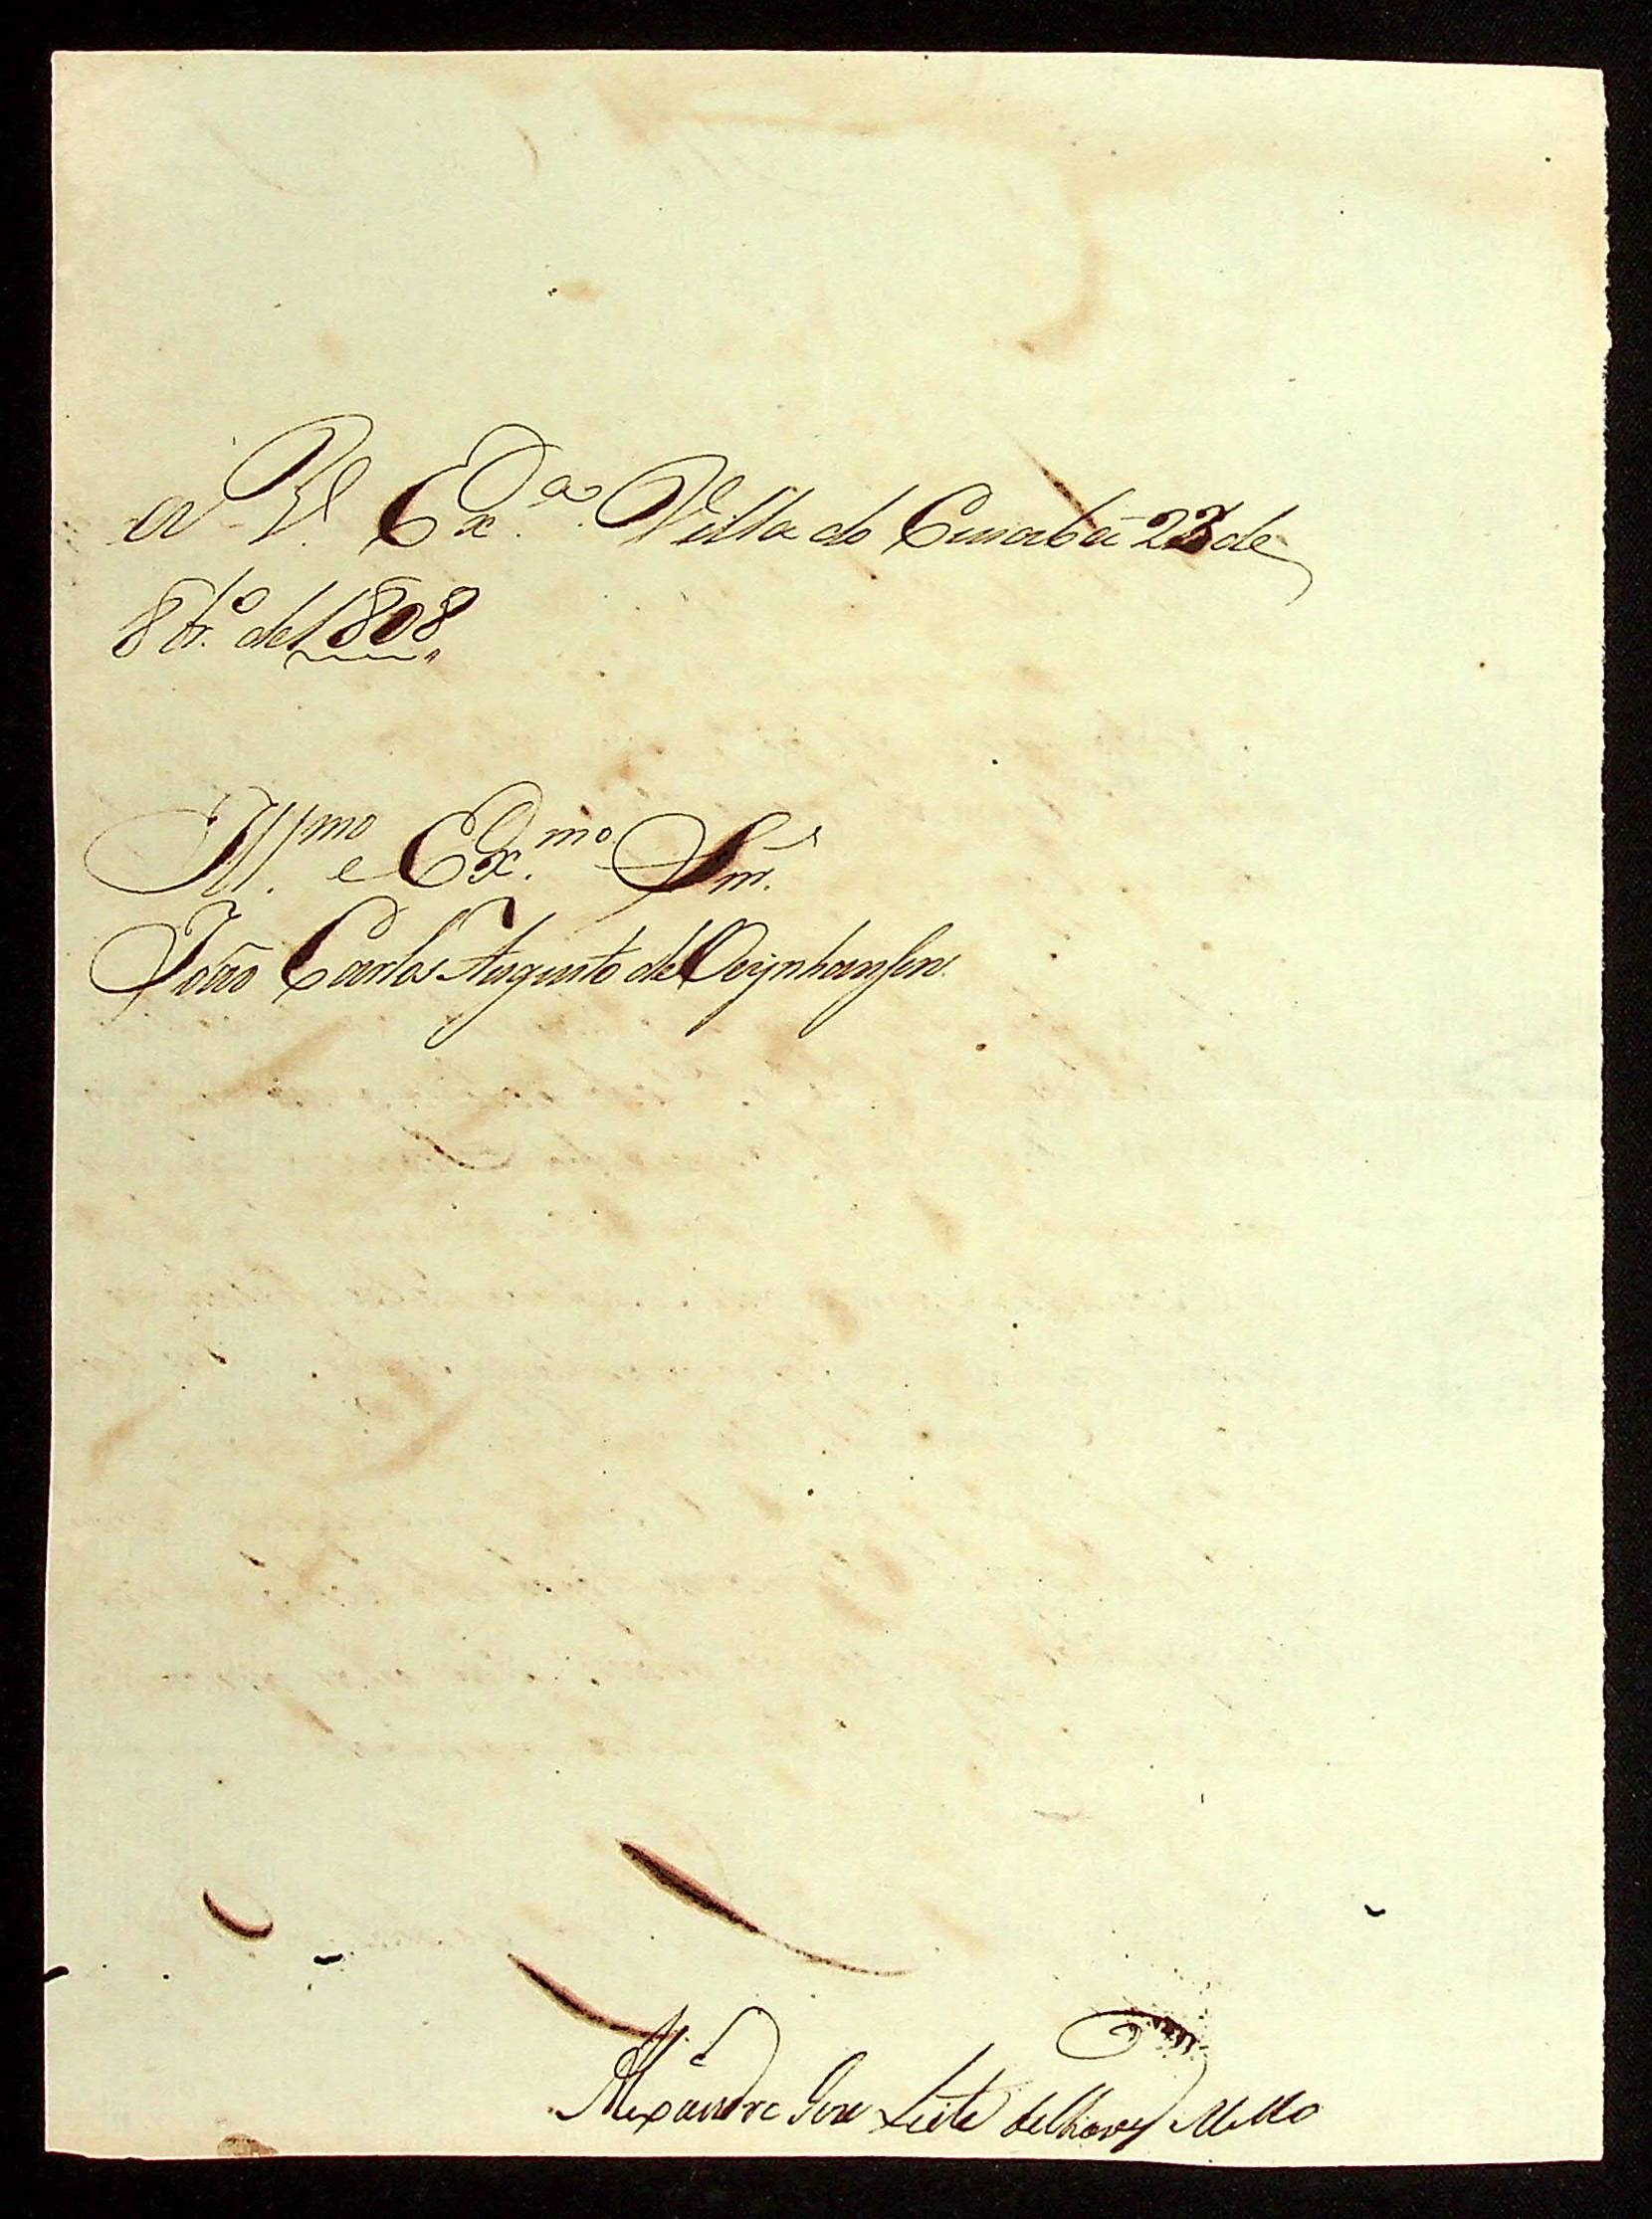 a V. Ex.ª Villa do Cuiabá 23 de
8br.º de 1808
Ill.mo e Ex.mo Snr.
João Carlos Augusto de Oeynhausen.
Alexandre Jose Leite de Chaves Mello